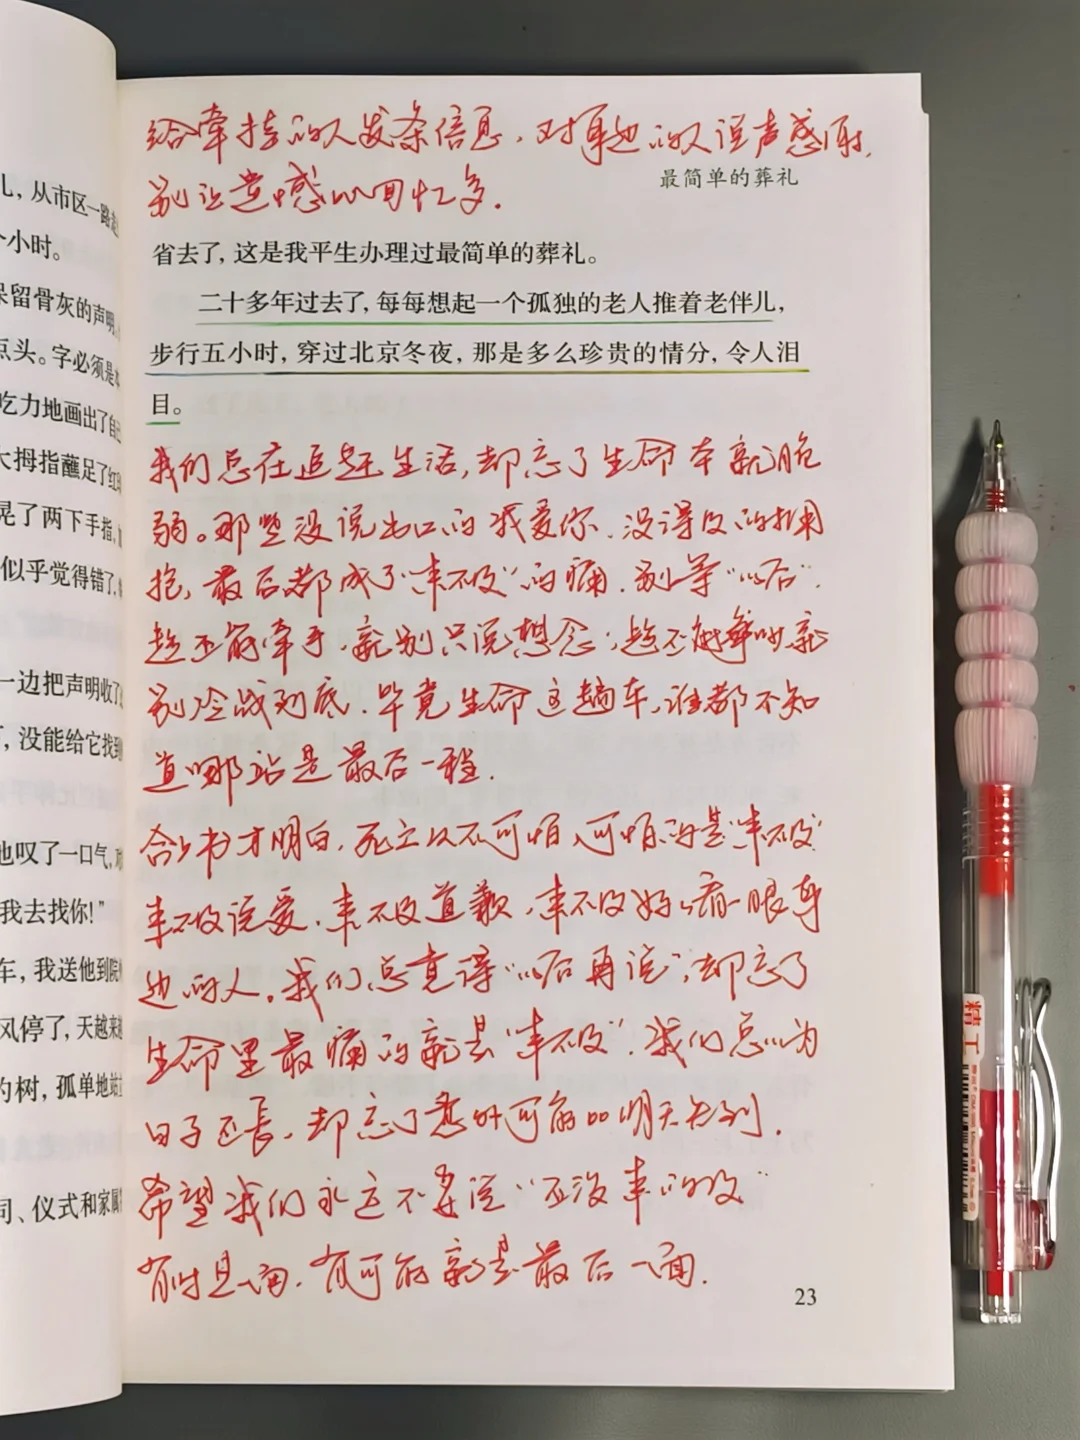 儿，从市区一路
个小时。
保留骨灰的声明，
点头。字必须是
吃力地画出了自己
大拇指蘸足了红
晃了两下手指，
似乎觉得错了，
一边把声明收了
，没能给它找到
他叹了一口气，
我去找你！”
车，我送他到院
风停了，天越来越
的树，孤单地站
司、仪式和家属
给牵挂的人发条信息，对身边的人说声感谢，
别让遗憾比回忆多。
最简单的葬礼
省去了，这是我平生办理过最简单的葬礼。
二十多年过去了，每每想起一个孤独的老人推着老伴儿，
步行五小时，穿过北京冬夜，那是多么珍贵的情分，令人泪
目。
我们总在追赶生活，却忘了生命本就脆
弱。那些没说出口的我爱你，没得及的拥
抱，最后都成了“来不及”的痛。别等“以后”。
趁还能牵手，就别只说想念；趁不能争吵，就
别冷战到底。毕竟生命这趟车，谁都不知
道哪站是最后一程。
合上书才明白，死亡从不可怕，可怕的是“来不及”
来不及说爱，来不及道歉，来不及好好看一眼身
边的人。我们总觉得“以后再说”，却忘了
生命里最痛的就是“来不及”。我们总以为
日子还长，却忘了意外可能比明天先到。
希望我们永远不要说“还没来的及”
有时见一面，有可能就是最后一面。
23
精工